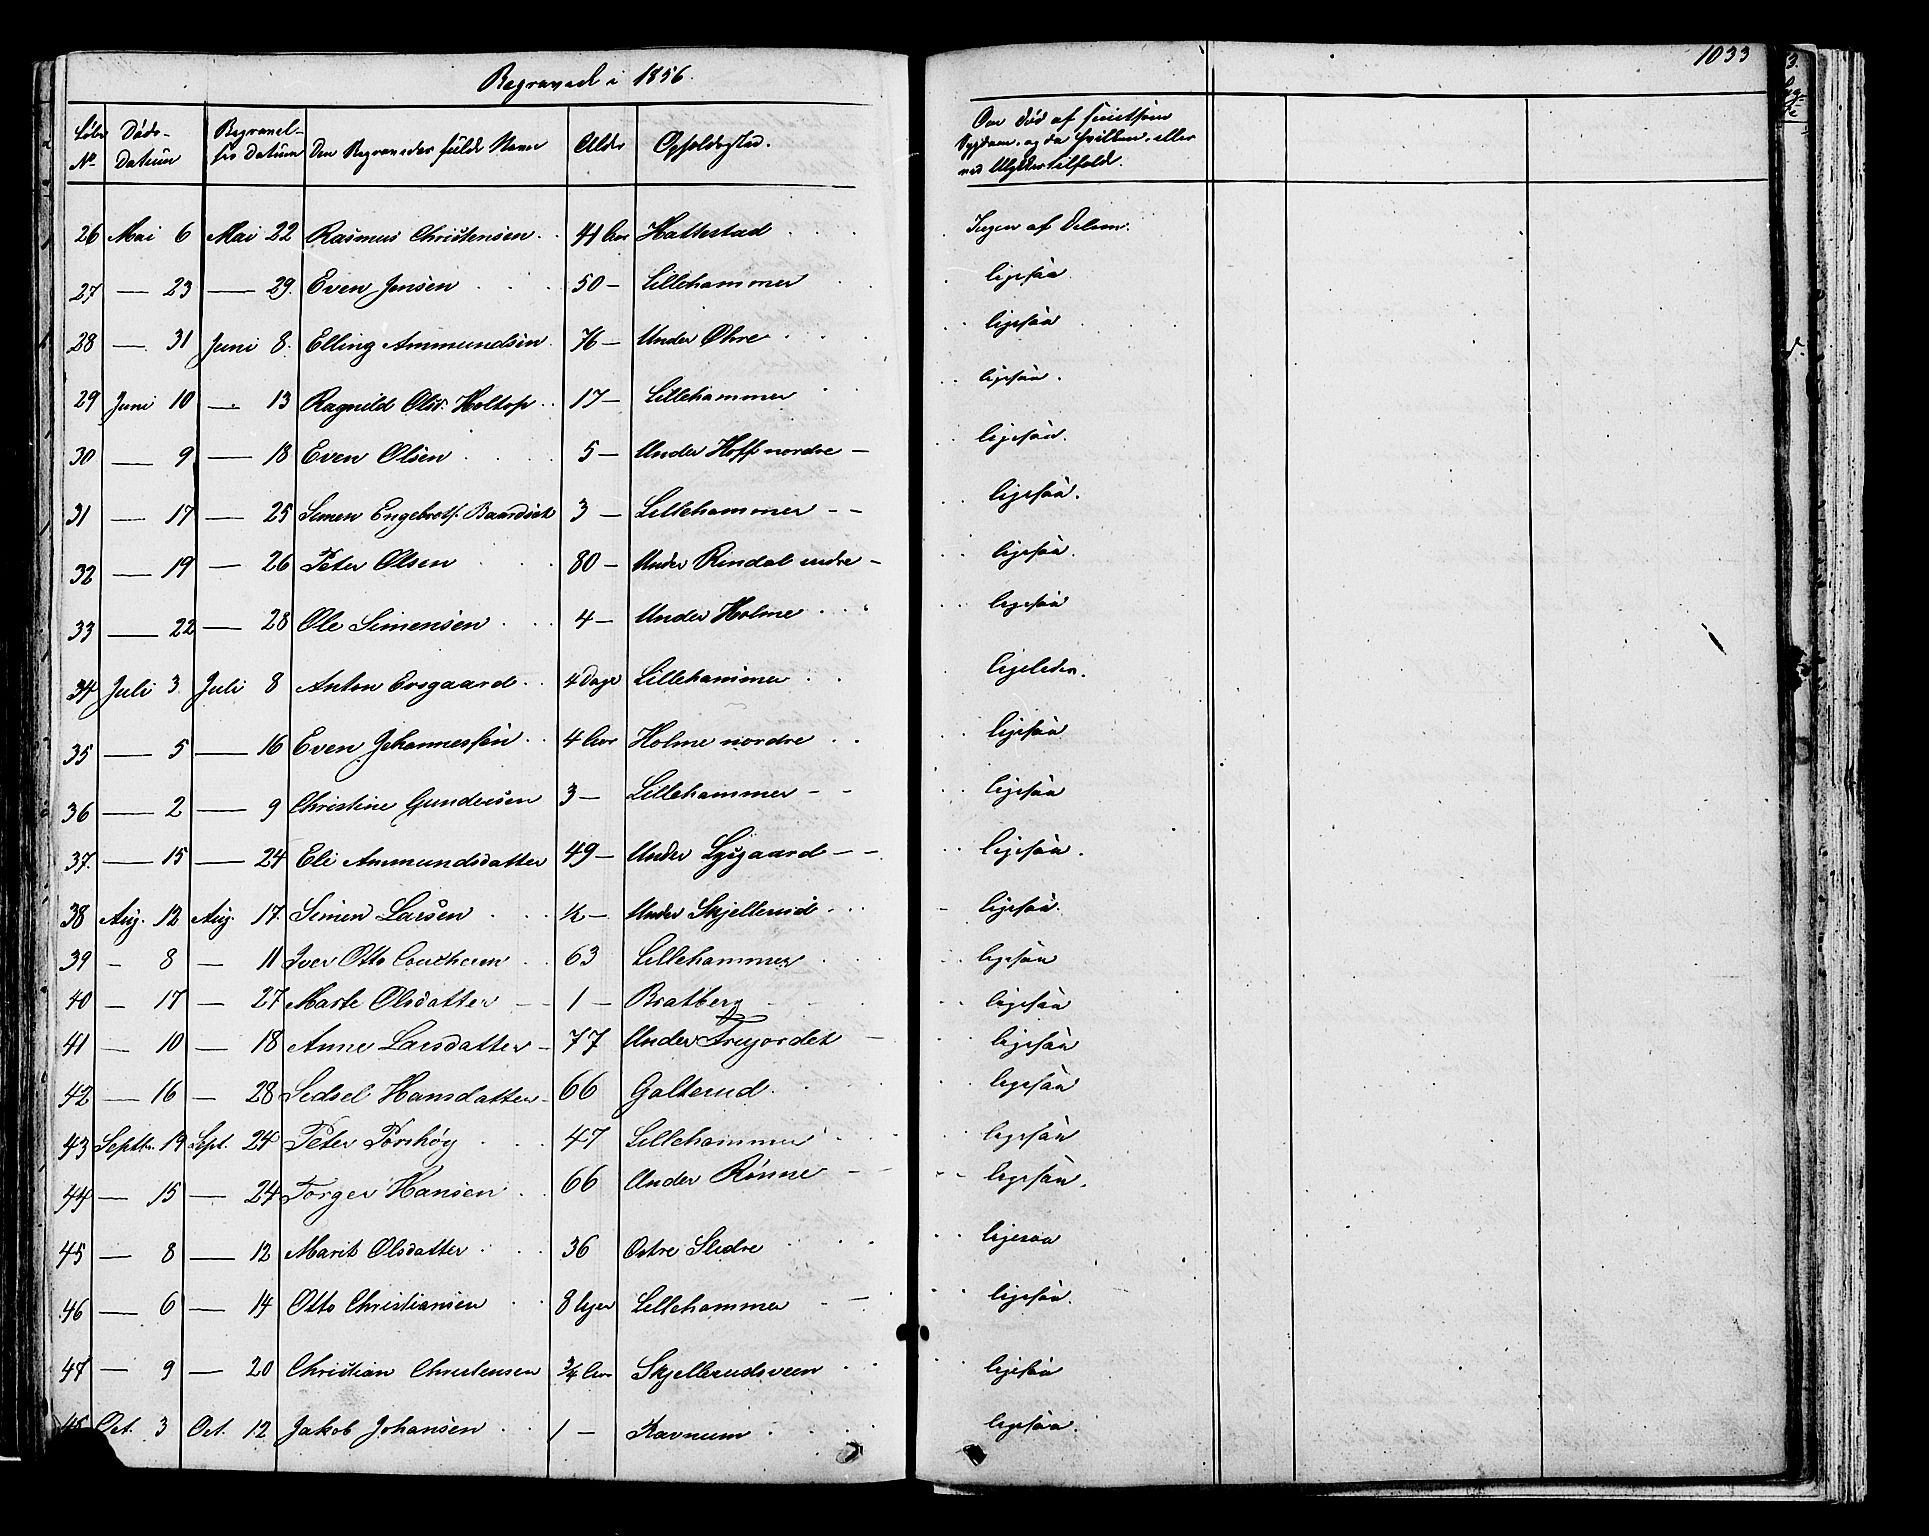 Begraved i 1856.
1033
Løbe No
Døds-Datum
Begravel-ses Datum
Den Begravedes fulde Navn
Alder
Opholdssted.
Om død af smitsom Sygdom, og da hvilken, eller ved Ulykkestilfælde.
26 Mai 6 Mai 22 Rasmus Christensen 41 Aar Hattestad Ingen af Delene.
27 — 23 — 29. Even Jensen 50 — Lillehammer ligesaa
28 — 31 Juni 8. Elling Ammundsen 76 — Under Øhre ligesaa
29 Juni 10 — 13 Ragnild Olsd. Holtop 17 — Lillehammer ligesaa.
30 — 9 — 18 Even Olsen 5 — Under Hoff nordre — ligesaa.
31 — 17 — 25 Simen Engebrets. Baardset 3 — Lillehammer — ligesaa.
32 — 19 — 26 Peter Olsen 80 — Under Rindal indre — ligesaa.
33 — 22 — 28 Ole Simensen 4 — Under Holme ligesaa
34 Juli 3. Juli 8 Anton Orsgaard 4 Dage Lillehammer ligeledes.
35 — 5 — 16 Even Johannessen 4 Aar Holme nordre ligesaa
36 — 2 — 9 Christine Gundersen 3 — Lillehammer — ligesaa
37. — 15 — 24 Eli Ammundsdatter 49 — Under Lysgaard — ligesaa.
38 Aug. 12 Aug. 17. Simen Larsen ½ — Under Skjellerud ligesaa.
39 — 8 — 11 Iver Otto 63 Lillehammer ligesaa
40 — 17 — 27 Marte Olsdatter 1 — Bratberg ligesaa
41 — 10 — 18 Anne Larsdatter 77 Under ligesaa
42 — 16 — 28 Sidsel Hansdatter 66 Galterud. ligesaa
43 Septbr. 19 Sept. 24 Peter Torshøy 47 Lillehammer ligesaa
44 — 15 — 24 Torger Hansen 66 Under Rønne ligesaa.
45 — 8 — 12 Marit Olsdatter 36 Østre Slidre ligesaa
46 — 6 — 14 Otto Christiansen 8 Uger Lillehammer ligesaa.
47 — 9 — 20 Christian Christensen ¾ Aar Skjellerudsveen ligesaa
48 Oct. 3 Oct. 12 Jakob Johansen 1 — Ravnum ligesaa.